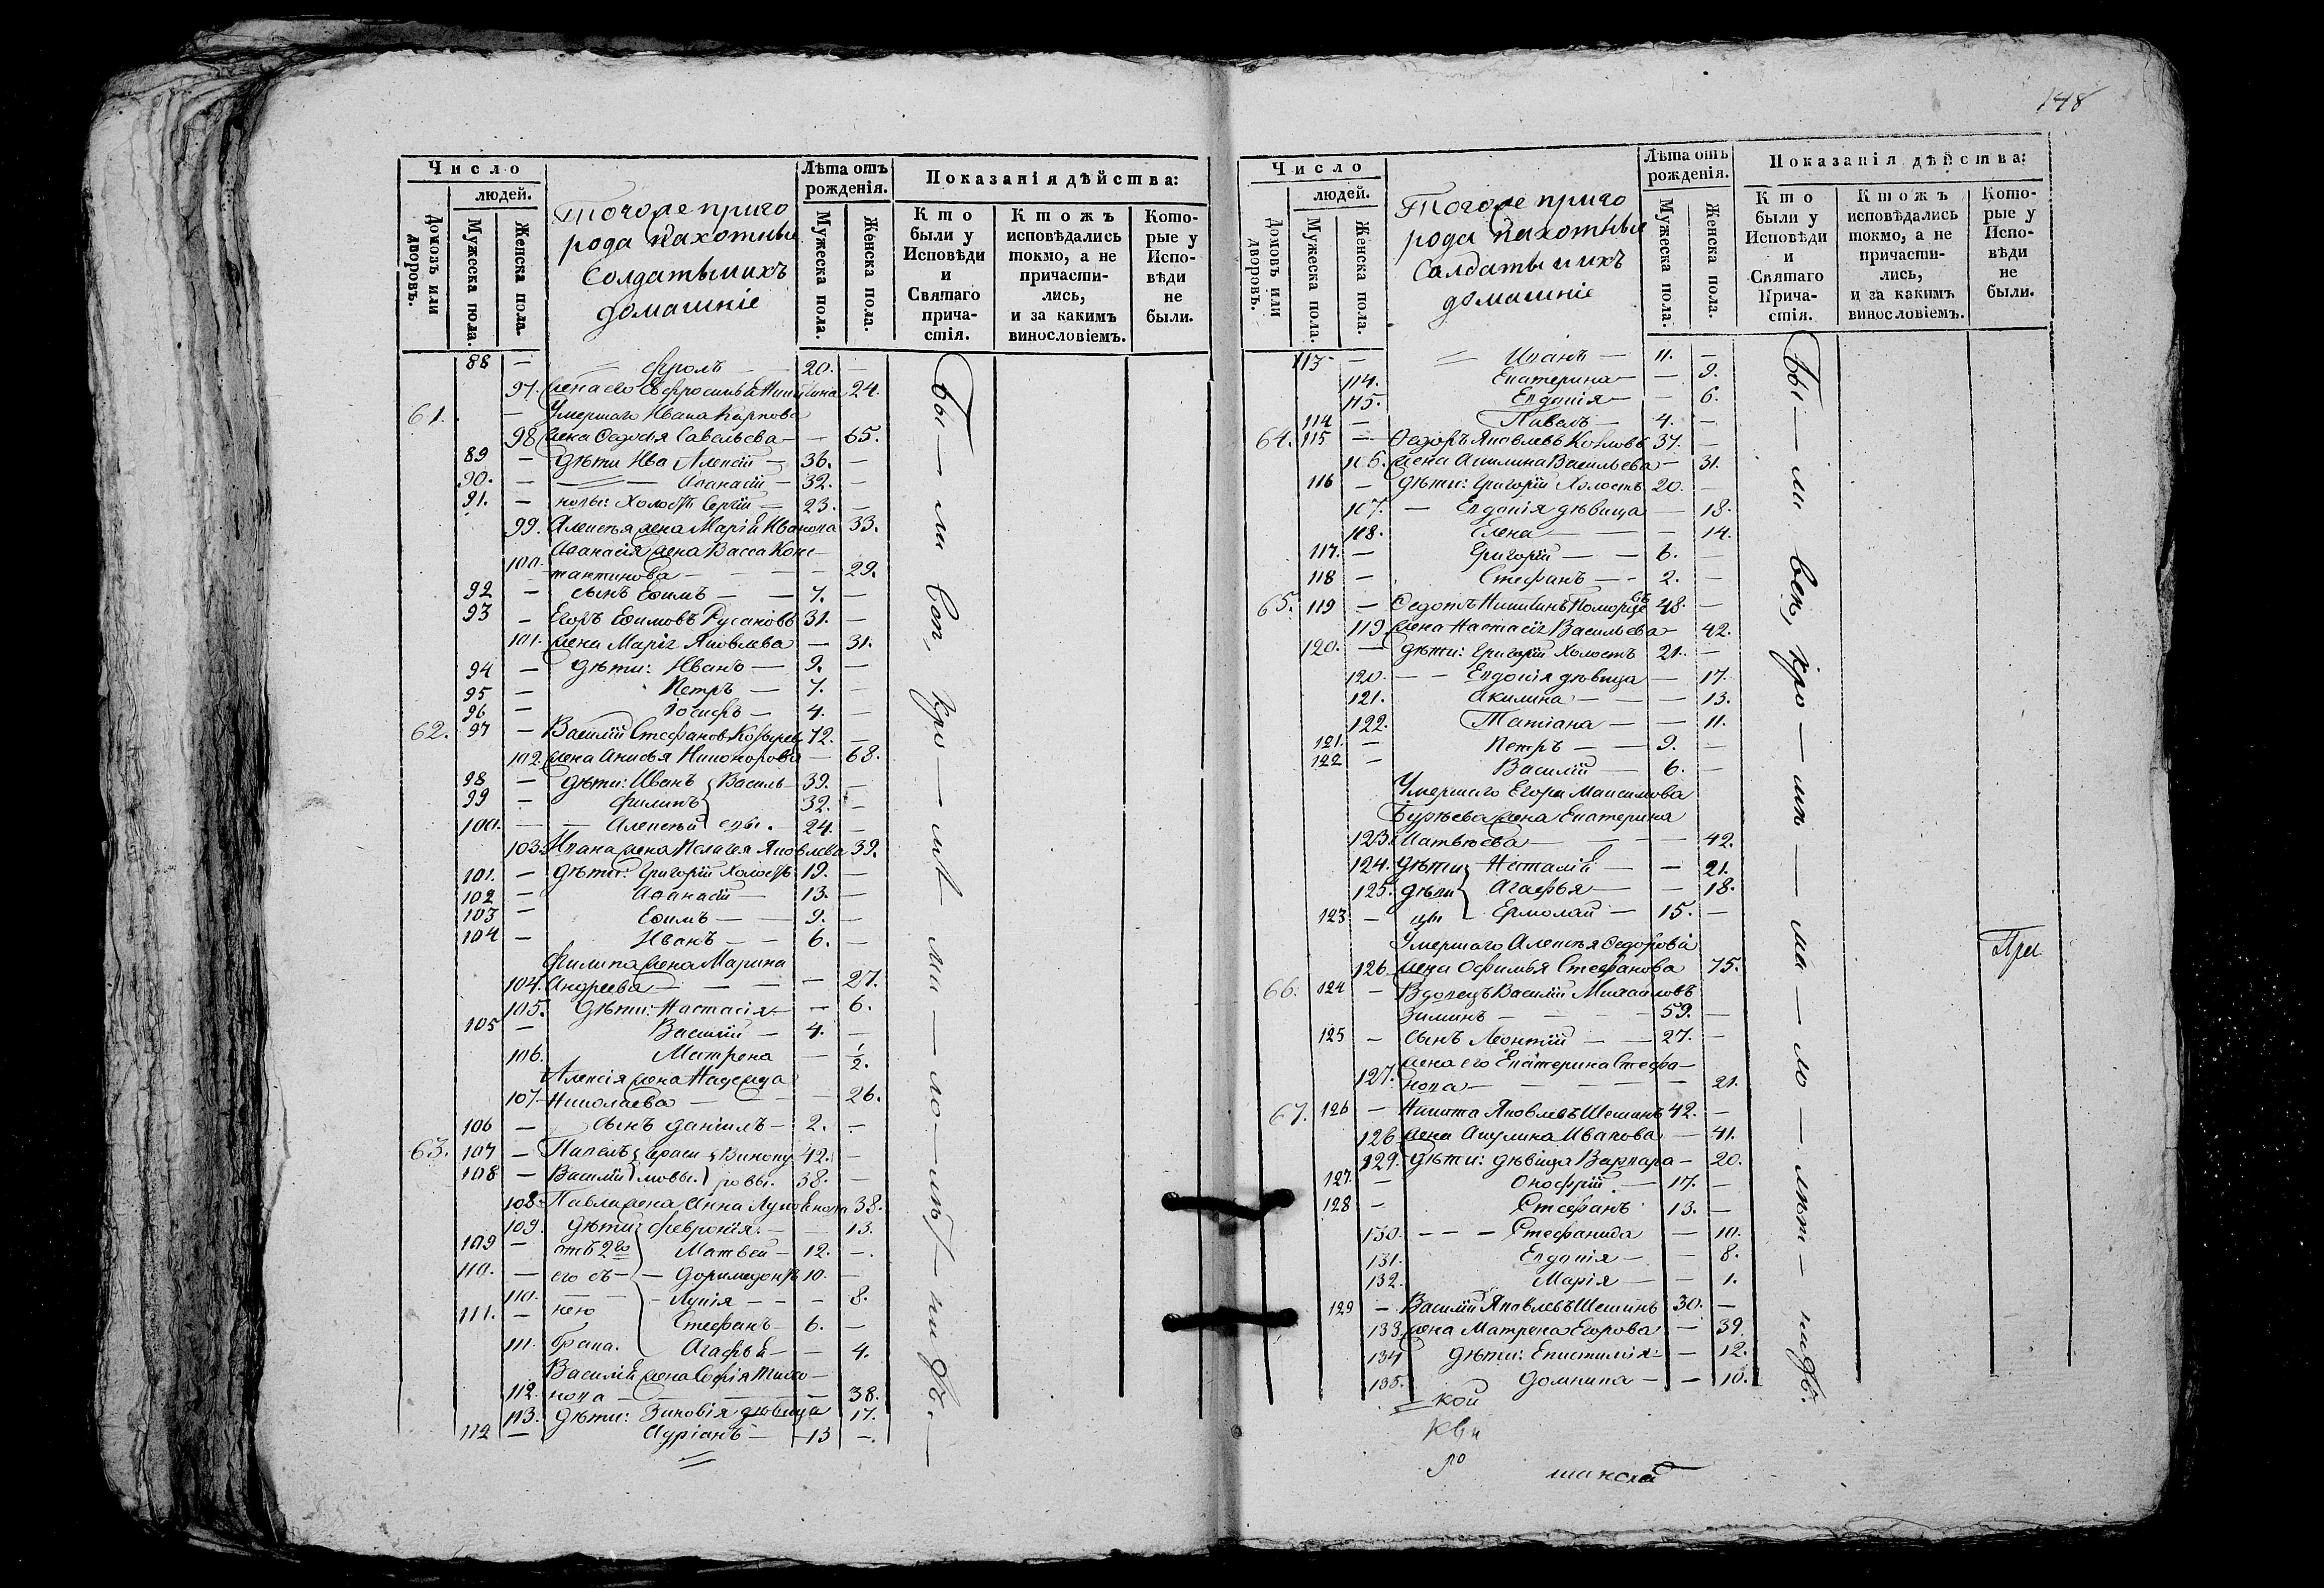 148
Число
людей.
Домовъ или дворовъ.
Мужеска пола.
Женска пола.
Тогоже приго
рода пахотные
Солдаты и ихъ
домашніе
Лѣта отъ рожденія.
Мужеска пола.
Женска пола.
Показанія дѣйства:
Кто были у Исповѣди и Святаго причастія.
Ктожъ исповѣдались токмо, а не причастились, и за какимъ винословіемъ.
Которые у Исповѣди не были.
88 — Фролъ — 20. —
97. жена его Евфросинья 24.
61. — Умершаго Ивана Карпова
98 жена Федосья Савельева — 65.
89 — дѣти Алексѣй — 36. —
90. — Аѳанасій — 32. —
91. — Холостъ Сергій — 23. —
99. Алексѣя жена Марія Иванова 33.
Аѳанасія жена Васса Конс
100. тантинова — 29.
92 — сынъ Еѳимъ — 7. —
93 — Егоръ Еѳимовъ Русановъ 31. —
101. жена Марія Яковлева — 31.
94 — дѣти: Иванъ — 9. —
95 — Петръ — 7. —
96 — Іосифъ — 4. —
62. 97 — Василій Стефановъ 72. —
102. жена Анисья Никонорова — 68.
98 — дѣти: Иванъ Василь 39. —
99 — Филипъ 32. —
100. — Алексѣй евы. 24. —
103. Ивана жена Пелагея Яковлева 39.
101. — дѣти: Григорій Холостъ 19. —
102 — Аѳанасій — 13. —
103 — Еѳимъ — 9. —
104 — Иванъ — 6. —
Филипа жена Марина
104. Андреева — 27.
105. дѣти: Настасія — 6.
105 — Василій — 4. —
106. Матрена — 1/2.
Алексія жена Надежда
107. Николаева — 26.
106 — сынъ Даніилъ — 2. —
63. 107 — Павелъ Гераси Виноку 42. —
108 — Василій мовы. ровы. 38. —
108. Павла жена Анна 38.
109. дѣти Февронія — 13.
109 — отъ 2го Матвей — 12. —
110. — его съ — Доримедонтъ 10. —
110. — нею — Лукія — 8.
111. — Стефанъ — 6. —
111. брака. Агафья — 4.
Василія жена Софія
112. нова — 38.
113. дѣти: Зиновія дѣвица 17.
112 — Адріанъ — 13 —
Число
людей.
Домовъ или дворовъ.
Мужеска пола.
Женска пола.
Тогоже приго
рода пахотные
Солдаты и ихъ
домашніе
Лѣта отъ рожденія.
Мужеска пола.
Женска пола.
Показанія дѣйства:
Кто были у Исповѣди и Святаго Причастія.
Ктожъ исповѣдались токмо, а не причастились, и за какимъ винословіемъ.
Которые у Исповѣди не были.
113 — Иванъ — 11. —
114. Екатерина — 9.
115. Евдокія — 6.
114 — Павелъ — 4. —
64. 115 — Ѳедоръ Яковлевъ Козловъ 37. —
106. жена Акилина Васильева — 31.
116 — дѣти: Григорій Холостъ 20. —
107. — Евдокія дѣвица — 18.
108. Елена — 14.
117. — Григорій — 6. —
118 — Стефанъ — 2. —
65. 119 — Ѳедотъ Никитинъ 48. —
119 жена Настасія Васильева — 42.
120. — дѣти: Григорій Холостъ 21. —
120. — Евдокія дѣвица — 17.
121. Акилина — 13.
122. Татіана — 11.
121. — Петръ — 9. —
122 — Василій — 6. —
Умершаго Егора Максимова
жена Екатерина
123. Матвѣева — 42.
124. дѣти Наталія — 21.
125. Агафья — 18.
123 — Ермолай — 15. —
Умершаго Алексѣя Ѳедорова
126. жена Офимья Стефанова 75.
Пре
66. 124 — Вдовецъ Василій Михайловъ
Зиминъ — 59. —
125 — сынъ Леонтій — 27. —
жена его Екатерина Стефа
127. нова — 21.
67. 126 — Никита Яковлевъ Шешинъ 42. —
126 жена Акулина Иванова — 41.
129. дѣти: дѣвица Варвара — 20.
127. — Онофрій — 17. —
128 — Стефанъ 13. —
130. — Стефанида — 10.
131. Евдокія — 8.
132. Марія — 1.
129 — Василій Яковлевъ Шешинъ 30. —
133. жена Матрена Егорова — 39.
134 дѣти: Епистимія — 12.
135. Домнина — 10.
кой